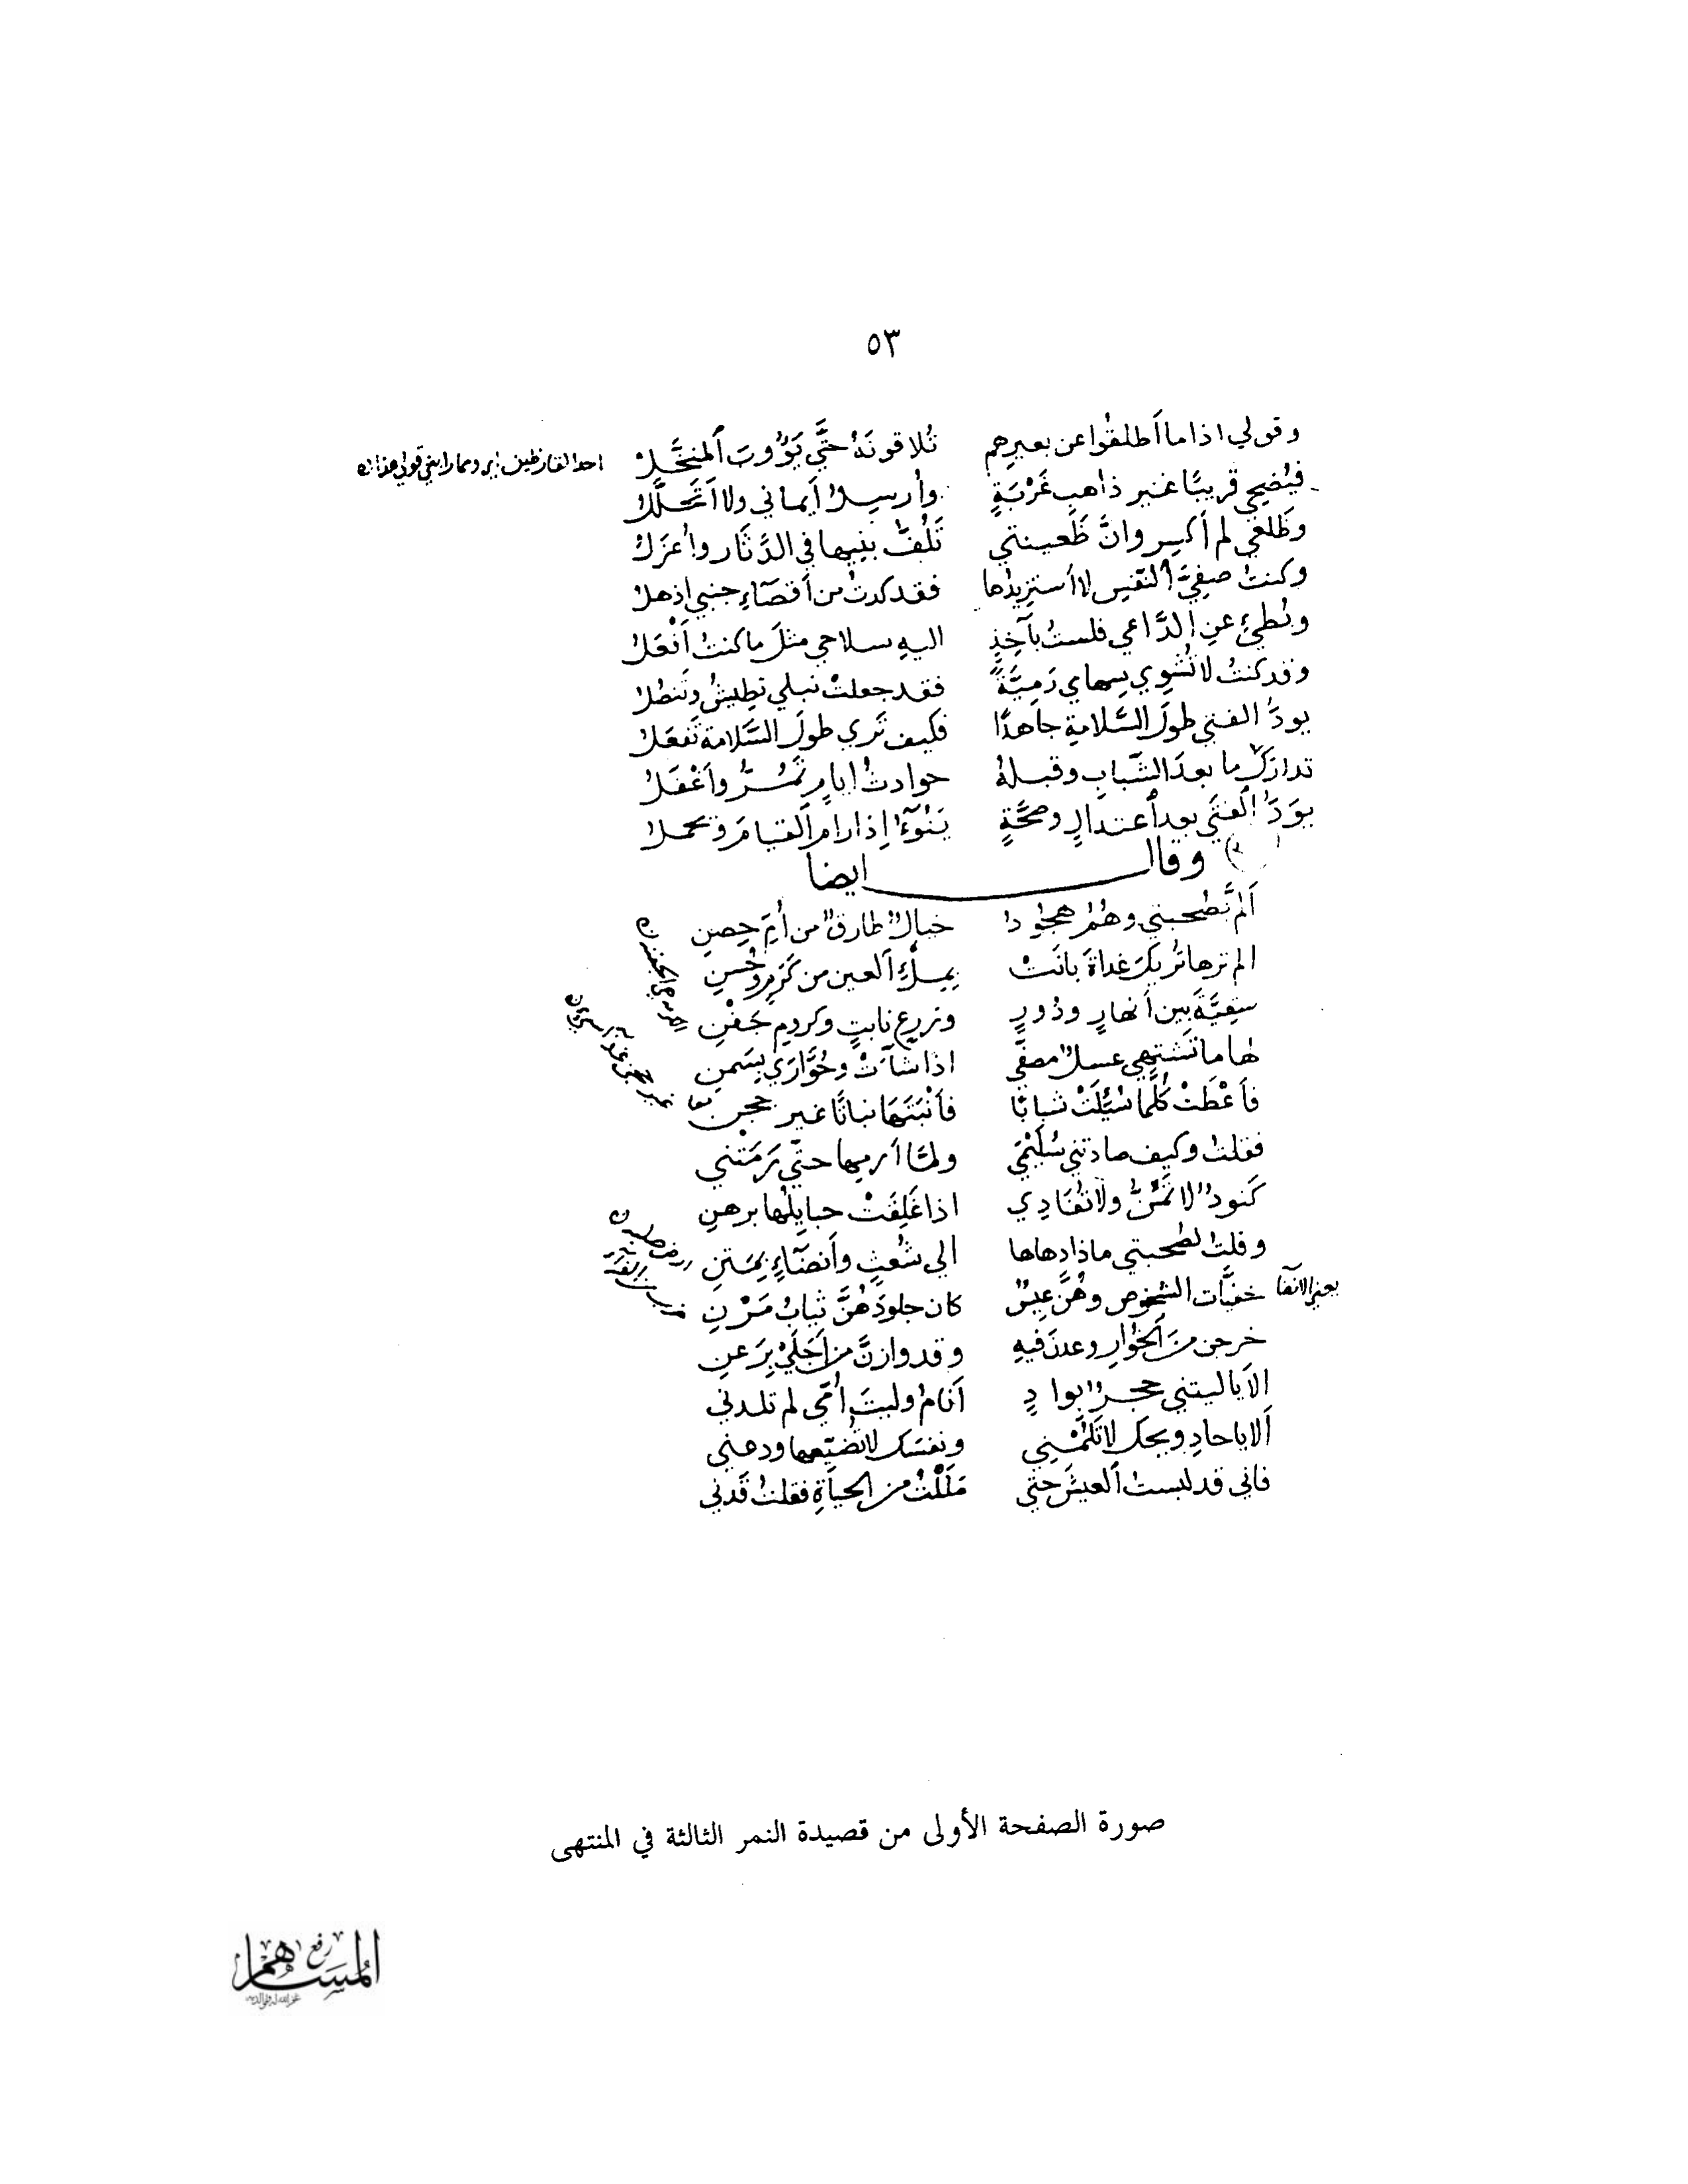 ٥٣
وقولي اذا ما أطلقوا عن بعيرهم تُلاقونَهُ حتَّى يَؤُوبَ ٱلمنخَّلُ
احد القارظين
فيُضحي قريبًا غير ذاهبِ غَرْبَةٍ وأرسِلُ أيماني ولا أتحلَّلُ
وظَلعي لم أكسر وانَّ ظَعينتي تَلُفُّ بنيها في الدِّثَار وأعزَلُ
وكنتُ صفيَّ ٱلنّفس لا أستزيدُها فقد كدتُ من أقصَآءِ جنبي اذهلُ
وبُطيءٍ عن الدَّاعي فلستُ بآخِذٍ اليهِ سلاحي مثلَ ما كنتُ أفْعَلُ
وقد كنتُ لا تُشوي سهامي رَمِيَّةً فقد جعلتْ نبلي تطيشُ وتَنصُلُ
يودُّ الفتى طولَ السَّلامةِ جاهدًا فكيف تَرى طولَ السَّلامة تَفعَلُ
تدارَكَ ما بعدَ الشَّبابِ وقبلهُ حوادثُ ايامٍ تمُـرُّ وأَغْفَلُ
يوَدُّ ٱلفتَى بعد أعتدالٍ وصحَّةٍ يَنُوءُ إذا رامَ ٱلقيامَ ويحملُ
وقال ايضا
أَلمَّ بصُحبتي وهُمُ هجودٌ خيالٌ طارقٌ من أُمِّ حِصنِ
الم ترها تُريكَ غداةَ بانَتْ بمِلْءِ ٱلعين من كَرَمٍ وحُسنِ
سَقِيَّةَ بين أنهارٍ ودُورٍ وزرعٍ نابتٍ وكرومِ جَفْنِ
لها ما تَشتهي عسلٌ مصفَّى اذا شآءَتْ وحُوَّارَى بسَمنِ
فأَعْطَتْ كُلَّما سُئِلَتْ شبابًا فأَنْبَتَهَا نباتًا غير حجن
فقلتُ وكيف صادتني سُلَيْمَى ولمَّا أرمِها حتّى رَمَتْني
كَنودٌ لا تَمُنُّ ولا تُفَادِي اذا غَلِقَتْ حبايلُها برهنِ
وقلتُ لصُحبتي ماذا دهاها الى شُعثٍ وأنضَآءٍ بمَتنِ
خفيَّات الشخوص وهُنَّ عِيسٌ كان جلودَهُنَّ ثيابُ مَرْنِ
خرجن منَ ٱلخوارِ وعدنَ فيهِ وقد وازنَّ من أجَلَىْ برَعنِ
الاَ يا ليتني حجرٌ بوادٍ أنامُ وليتَ أُمّي لم تلدني
أَلا يا حادِ ويحكَ لا تَلُمْني ونفسَكَ لا تُضَيِّعها ودعني
فاني قد لبستُ ٱلعيشَ حتى مَلَلْتُ من الحياةِ فقلتُ قَدْني
صورة الصفحة الأولى من قصيدة النمر الثالثة في المنتهى
رفع
المساهم